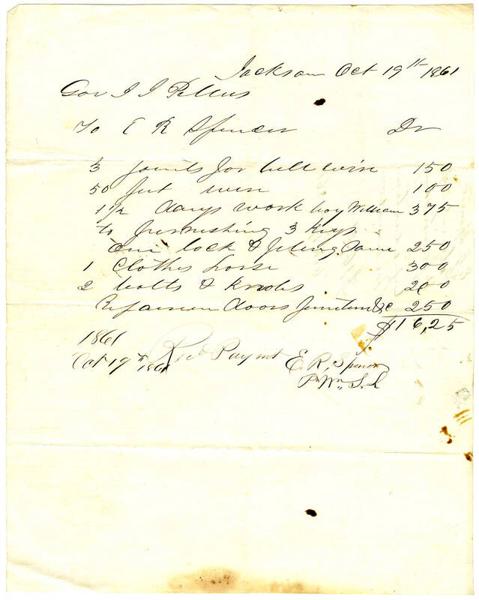 Jackson Oct 19th 1861
Gov J J Pettus
To E R Spencer Dr
3 joints for bell wire 150
50 feet wire 100
1 1/2 days work boy William 375
To furnishing 3 keys
One lock & fitting Same 250
1 Clothes horse 300
2 bolts & knobs 200
Repairing doors furniture &c 250
$16,25
1861
Oct 19th 1861 Recd Paymt E. R. Spencer